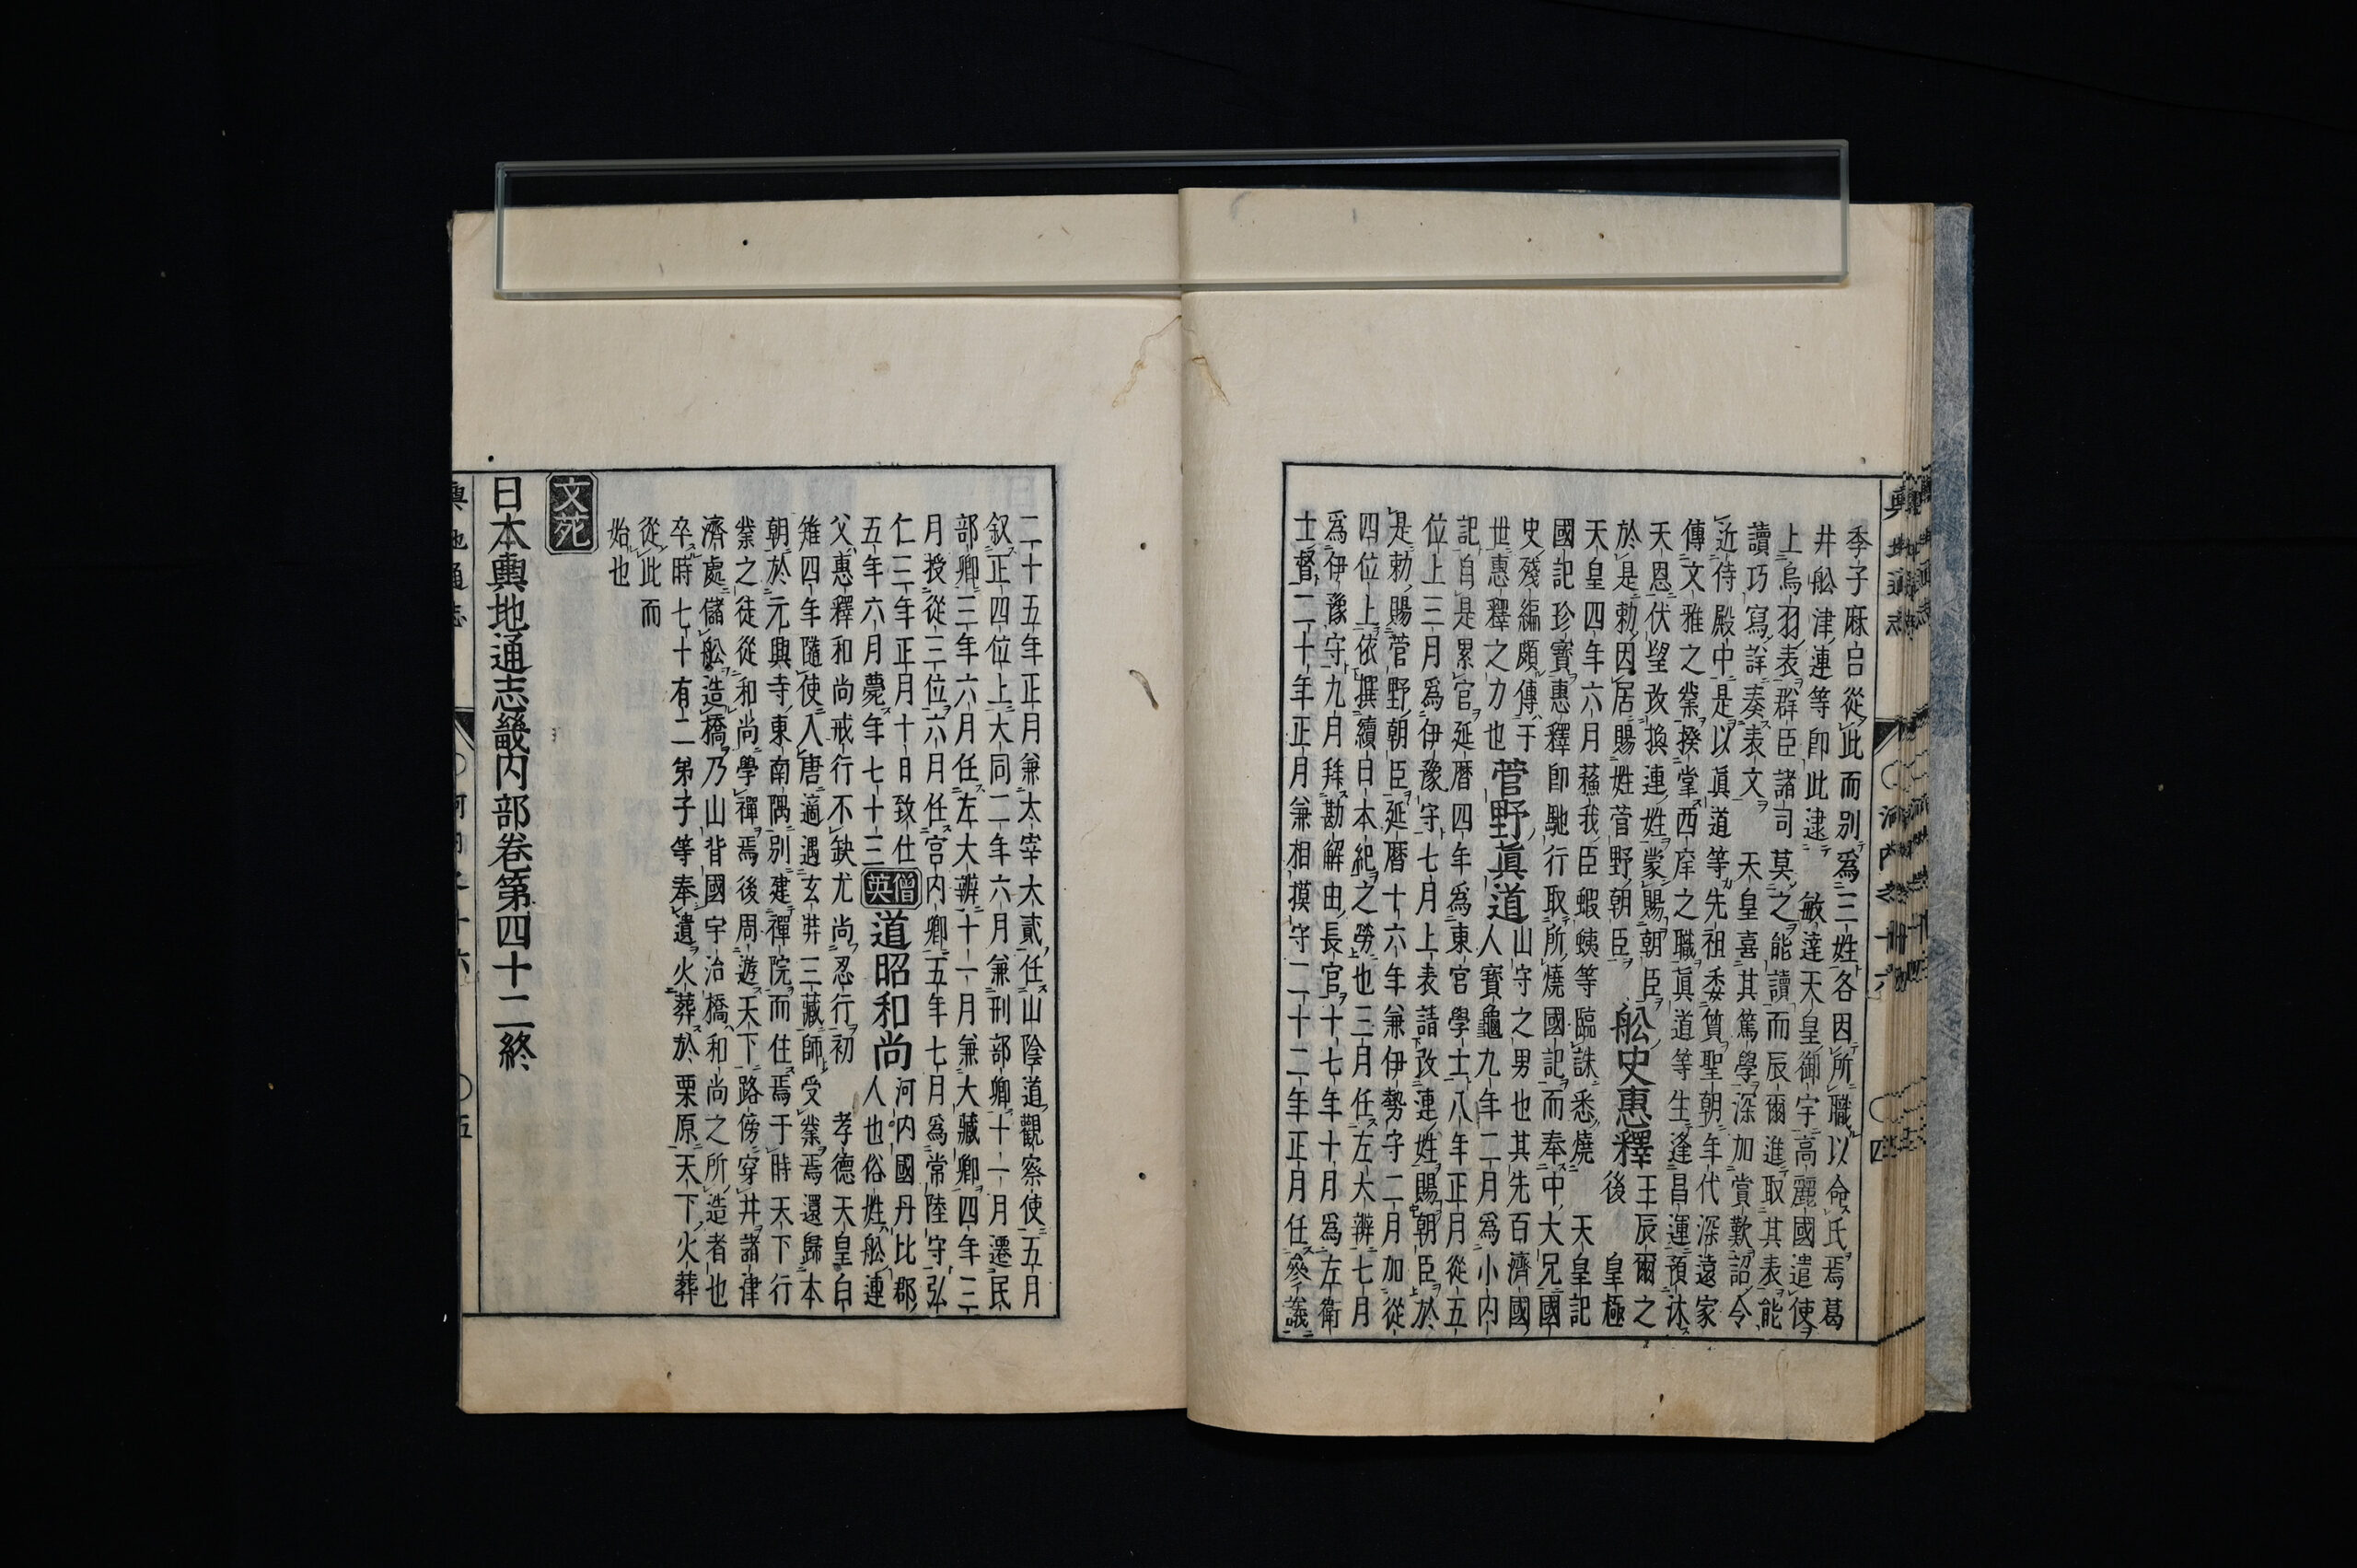 季子麻呂從此而別爲三姓各因所職以命氏焉葛
井舩津連等卽此逮 敏達天皇御宇高麗國遣使
上烏羽表群臣諸司莫之能讀而辰爾進取其表能
讀巧寫詳奏表文 天皇喜其篤學深加賞歎詔令
近侍殿中是以眞道等先祖委質聖朝年代深遠家
傳文雅之業揆掌西庠之職眞道等生逢昌運預沐
天恩伏望改換連姓蒙賜朝臣
於是勅因居賜姓菅野朝臣
舩史惠釋
王辰爾之
後 皇極
天皇四年六月蘓我臣蝦蛦等臨誅悉燒 天皇記
國記珍寶惠釋卽馳行取所燒國記而奉中大兄國
史殘編頗傳于
世惠釋之力也
菅野眞道
山守之男也其先百濟國
人寶龜九年二月爲小內
記自是累官延曆四年爲東宮學士八年正月從五
位上三月爲伊豫守七月上表請改連姓賜朝臣於
是勅賜菅野朝臣延曆十六年兼伊勢守二月加從
四位上依撰續日本紀之勞也三月任左大辨七月
爲伊豫守九月拜勘解由長官十七年十月爲左衛
士督二十年正月兼相摸守二十二年正月任參議
二十五年正月兼太宰大貳任山陰道觀察使五月
叙正四位上大同二年六月兼刑部卿十一月遷民
部卿三年六月任左大辨十一月兼大藏卿四年三
月授從三位六月任宮內卿五年七月爲常陸守弘
仁三年正月十日致仕
五年六月薨年七十三
僧英
道昭和尚
河内國丹比郡
人也俗姓舩連
父惠釋和尚戒行不缺尤尚忍行初 孝德天皇白
雉四年隨使入唐適遇玄弉三藏師受業焉還歸本
朝於元興寺東南隅別建禪院而住焉于時天下行
業之徒從和尚學禪焉後周遊天下路傍穿井諸津
濟處儲舩造橋乃山背國宇治橋和尚之所造者也
卒時七十有二弟子等奉遺火葬於栗原天下火葬
從此而
始也
文苑
日本輿地通志畿内部卷第四十二終